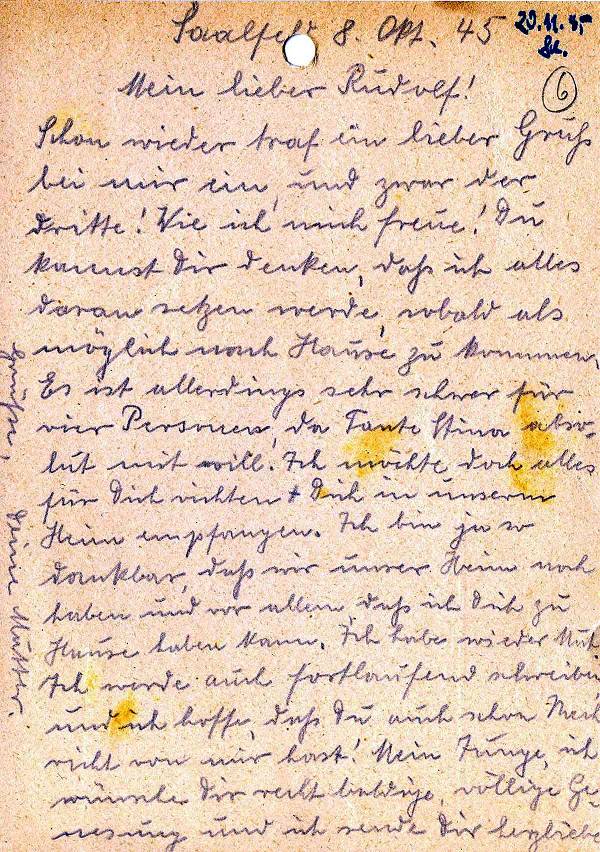 Saalfeld 8. Okt. 45
20.11.45
6
Mein lieber Rudolf!
Schon wieder traf ein lieber Gruß
bei mir ein, und zwar der
dritte! Wie ich mich freue! Du
kannst Dir denken, daß ich alles
daran setzen werde, sobald als
möglich nach Hause zu kommen.
Es ist allerdings sehr schwer für
vier Personen, da Tante Stina abso-
lut mit will. Ich möchte doch alles
für Dich richten + Dich in unserm
Heim empfangen. Ich bin ja so
dankbar, daß wir unser Heim noch
haben und vor allem daß ich Dich zu
Hause haben kann. Ich habe wieder Mut
Ich werde auch fortlaufend schreiben
und ich hoffe, daß Du auch schon Nach
richt von mir hast! Mein Junge, ich
wünsche Dir recht baldige, völlige Ge
nesung und ich sende Dir herzliche
Grüße, Deine Mutter.